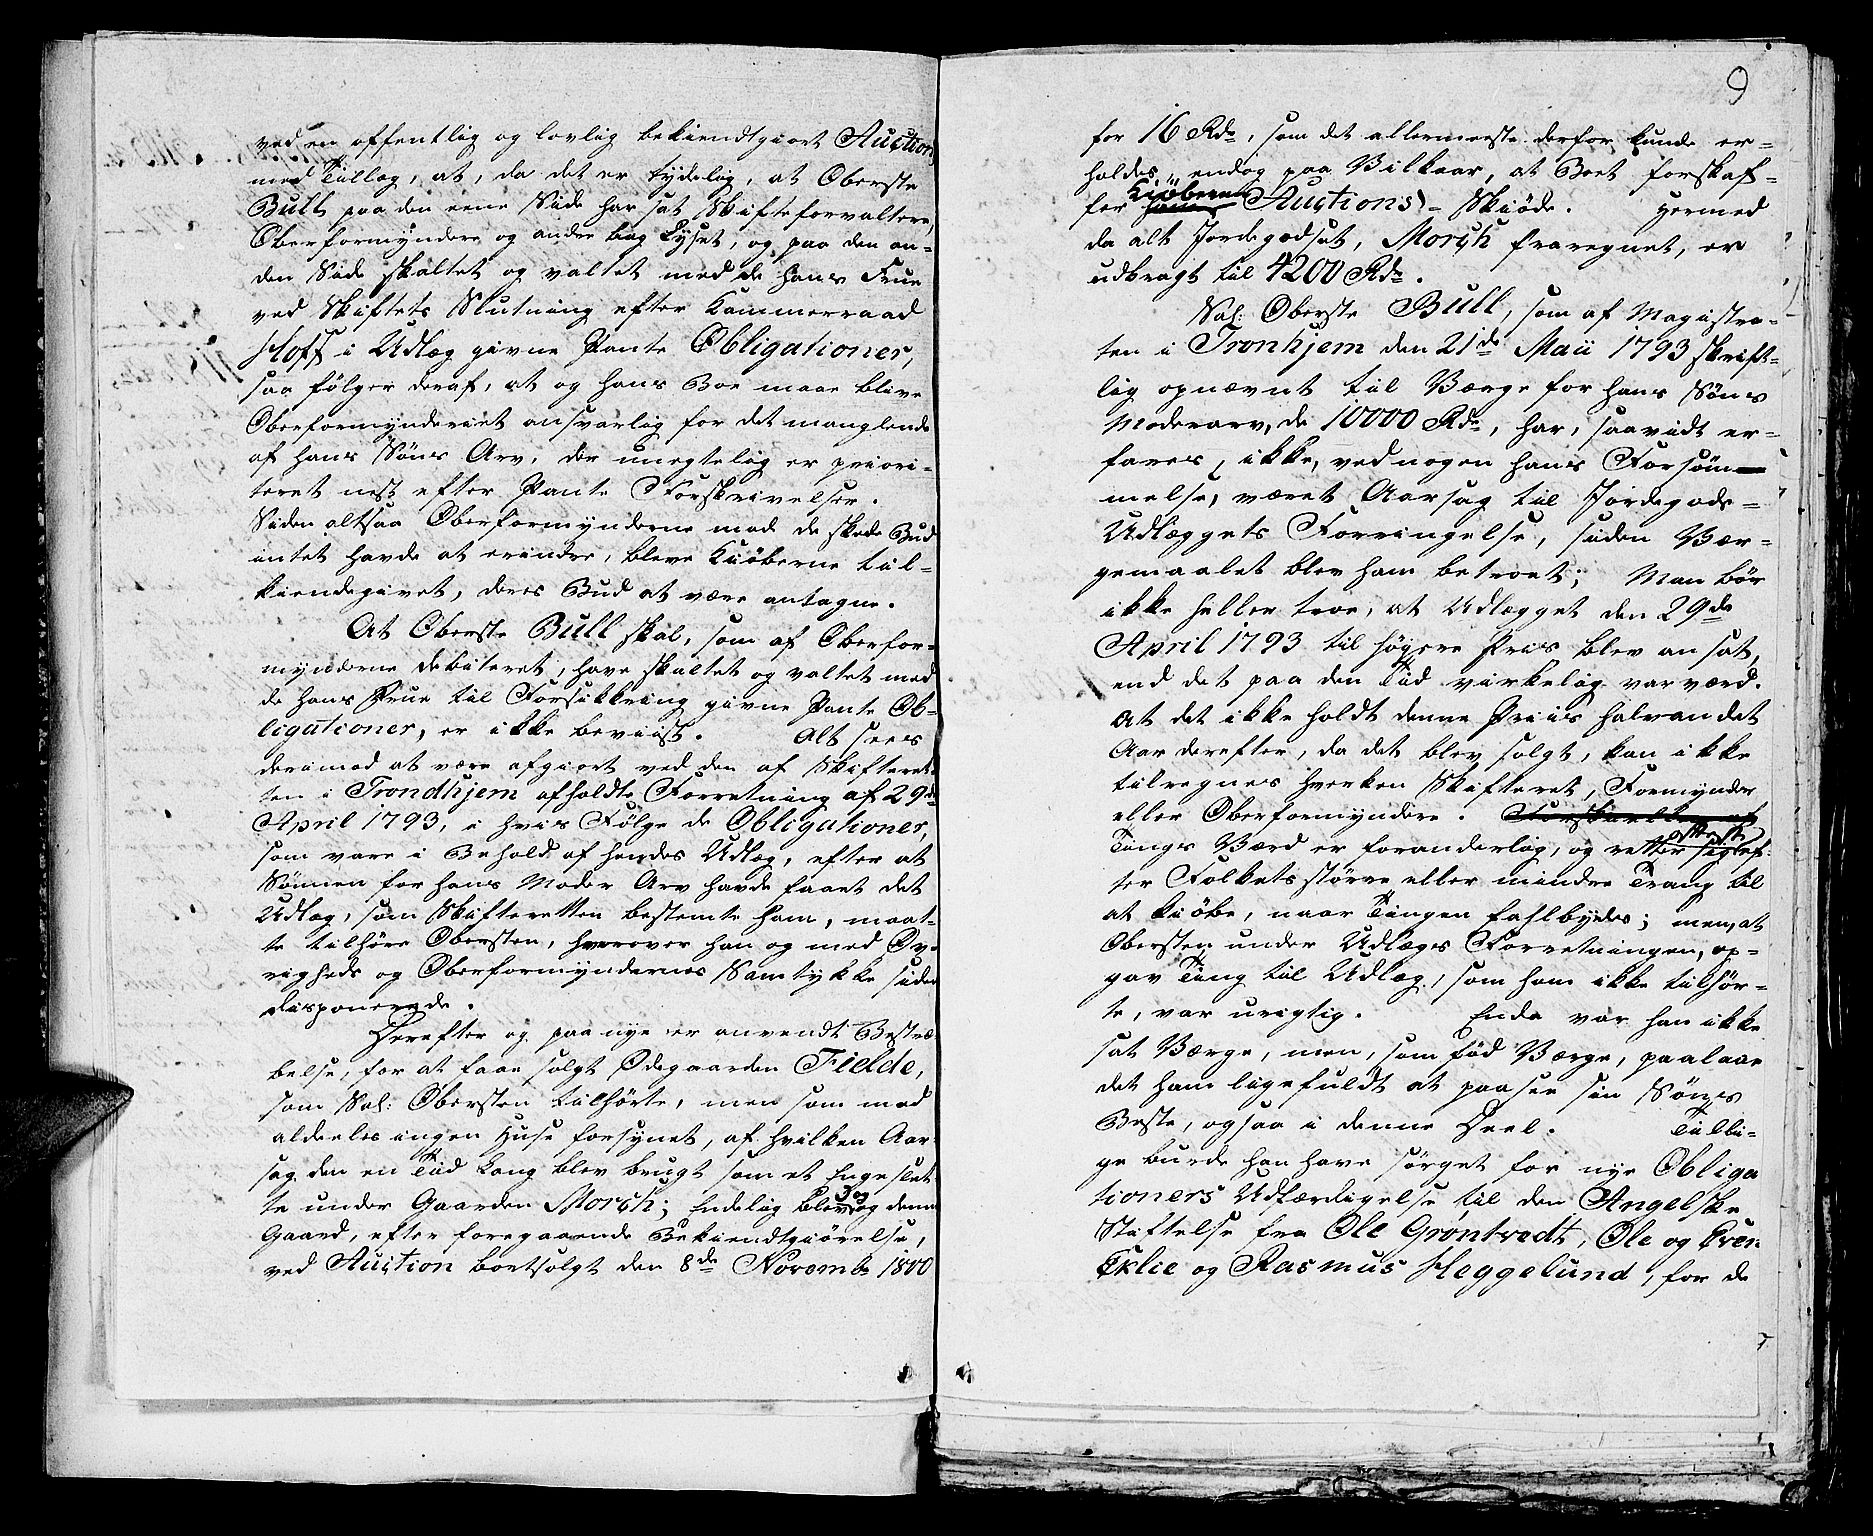 ved en offentlig og lovlig bekiendtgiort Auction,
med Tillæg, at, da det er tydelig, at Oberste
Bull paa den eene Side har sat Skifteforvaltere,
Oberformyndere og andre bag Lyset, og paa den an-
den Side skaltet og valtet med de hans Frue
ved Skiftets Slutning efter Kammerraad
Hoff i Udlæg givne Pante Obligationer,
saa følger deraf, at og hans Boe maae blive
Oberformynderiet ansvarlig for det manglende
af hans Søns Arv, der unegtelig er priori-
teret nest efter Pante Forskrivelser.
Siden altsaa Oberformynderne mod de skede Bud
intet havde at erindre, bleve Kiöberne til-
kiendegivet, deres Bud at være antagne.
At Oberste Bull skal, som af Oberfor-
mynderne debiteret, have skaltet og valtet med
de hans Frue til Forsikkring givne Pante Ob-
ligationer, er ikke beviist. Alt sees
derimod at være afgiort ved den af Skifteret-
ten i Trondhjem afholdte Forretning af 29de
April 1793, i hvis Følge de Obligationer,
som vare i Behold af hendes Udlæg, efter at
Sønnen for hans Moder Arv havde faaet det
Udlæg, som Skifteretten bestemte ham, maat-
te tilhøre Obersten, hvorover han og med Øv-
righeds og Oberformyndernes Samtykke siden
disponerede.
Herefter og paa nye er anvendt Bestræ-
belse, for at faae solgt Ødegaarden Fielde,
som Sal: Obersten tilhørte, men som med
aldeeles ingen Huse forsynet, af hvilken Aar-
sag den en Tiid lang blev brugt som et Engeslet-
te under Gaarden Morsch; Endelig blev og denne
Gaard, efter foregaaende Bekiendtgiørelse,
ved Auction bortsolgt den 8de Novemb. 1800
9
for 16 Rdr., som det allermeeste derfor kunde er-
holdes, endog paa Vilkaar, at Boet forskaf-
fer Kiöberen Auctions-Skiøde. Hermed
da alt Jordegodset, Morsch fraregnet, er
udbragt til 4200 Rdr.
Sal: Oberste Bull, som af Magistra-
ten i Tronhjem den 21de Maii 1793 skrift-
lig opnævnt til Værge for hans Søns
Moderarv, de 10000 Rdr., har, saavidt er-
fares, ikke, ved nogen hans Forsøm-
melse, været Aarsag til Jordegods-
Udlæggets Forringelse, siden Vær-
gemaalet blev ham betroet; Man bør
ikke heller troe, at Udlægget den 29de
April 1793 til høyere Priis blev ansat,
end det paa den Tiid virkelig var værd.
At det ikke holdt denne Priis halvandet
Aar derefter, da det blev solgt, kan ikke
tilregnes hverken Skifteret, Formynder
eller Oberformyndere.
Tings Værd er foranderlig, og retter sig ef-
ter Folkets større eller mindre Trang til
at kiøbe, naar Tingen falbydes; men, at
Obersten under Udlægs Forretningen, op-
gav Ting til Udlæg, som ham ikke tilhør-
te, var urigtig. Enda var han ikke
sat Værge, men, som fød Værge, paalaae
det ham ligefuldt at paasee sin Søns
Beste, ogsaa i denne Deel. Tilli-
ge burde han have sørget for nye Obliga-
tioners Udfærdigelse til den Angelske
Stiftelse fra Ole Grøntvedt, Ole og Even
Eklie og Rasmus Heggelund, for de